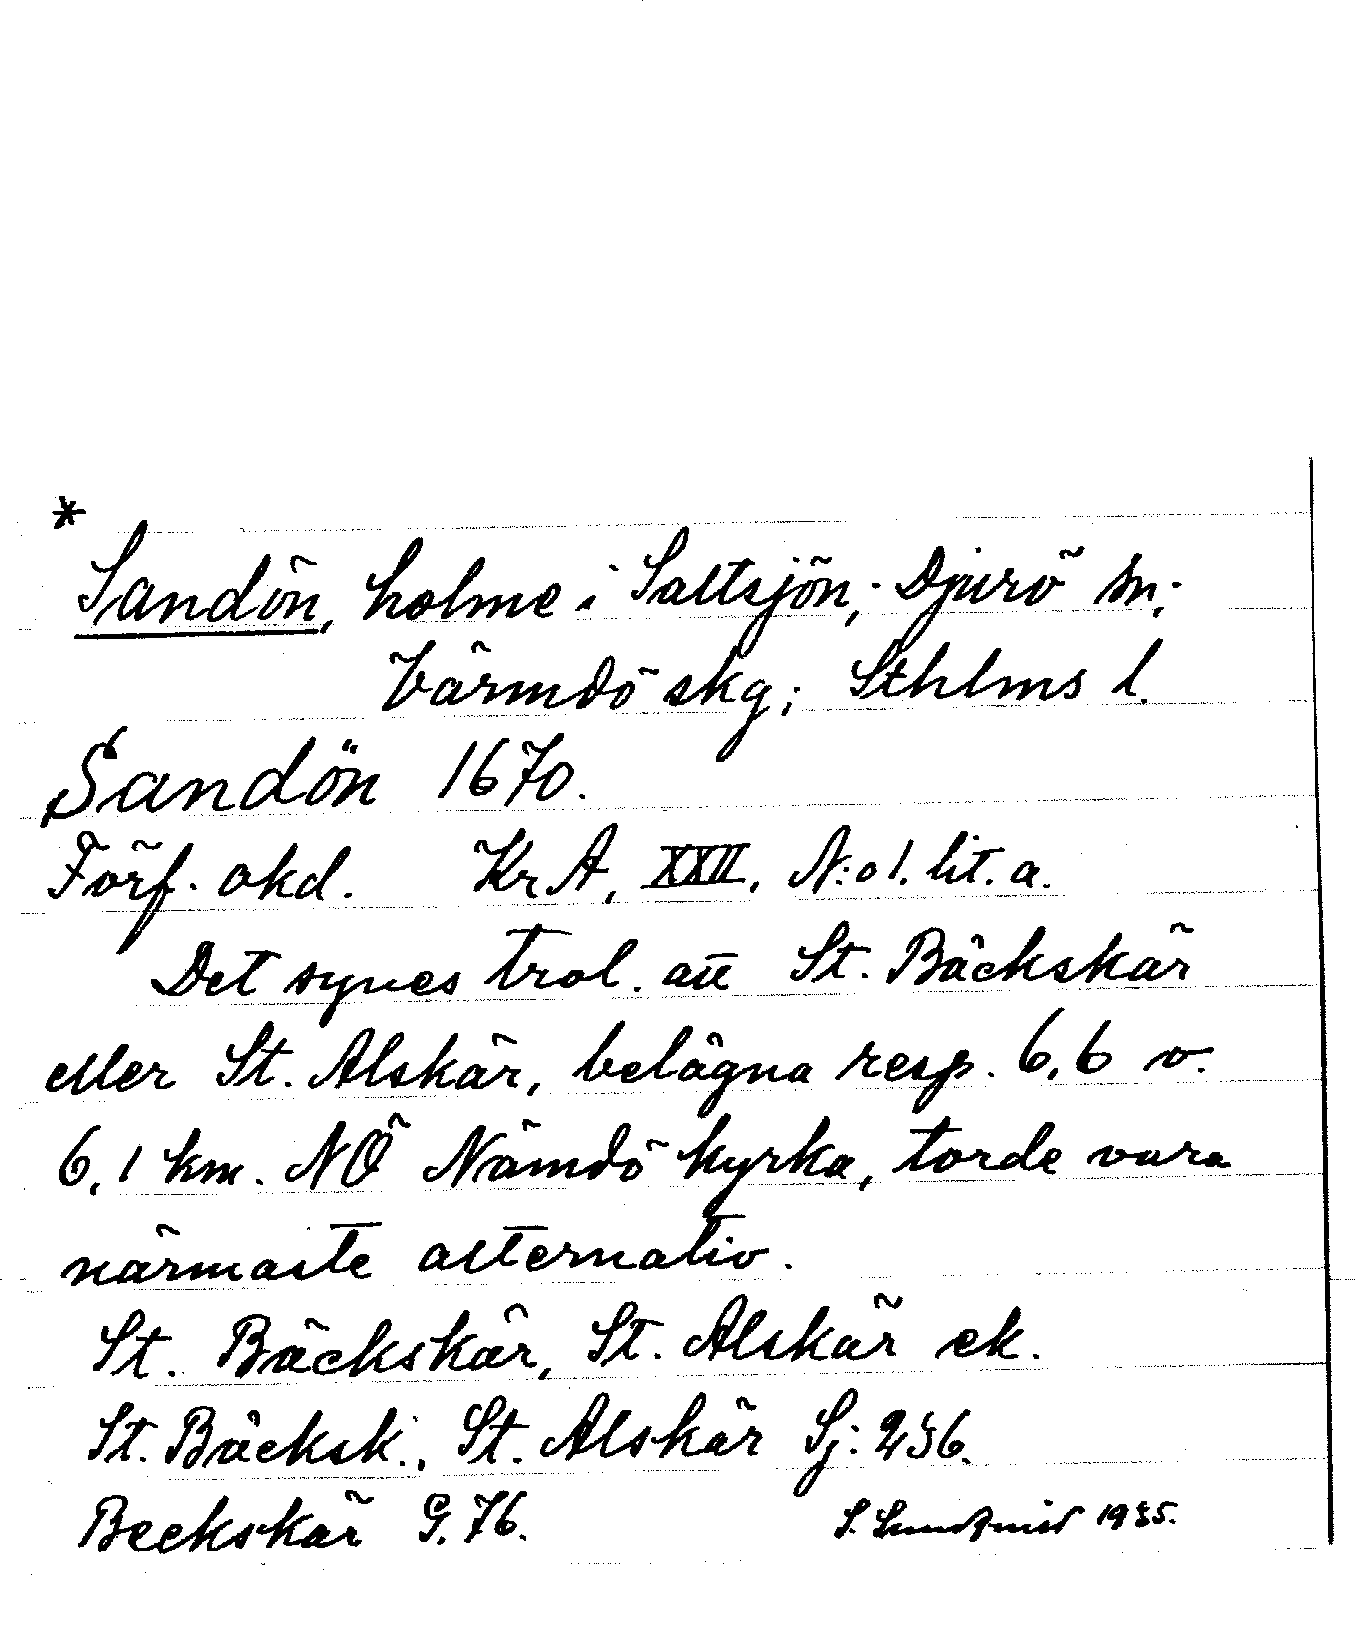 *
Sandön, holme i Saltsjön; Djurö sn;
Värmdö skg; Sthlms l.
Sandön 1670.
Förf. okd. KrA, XXII, N:o 1. lit. a.
Det synes trol. att St. Bäckskär
eller St. Alskär, belägna resp. 6,6 o.
6,1 km. NÖ Nämdö kyrka, torde vara
närmaste alternativ.
St. Bäckskär, St. Alskär ek.
St. Bäcksk., St. Alskär Sj: 236.
Beckskär G. 76.
S. 1935.